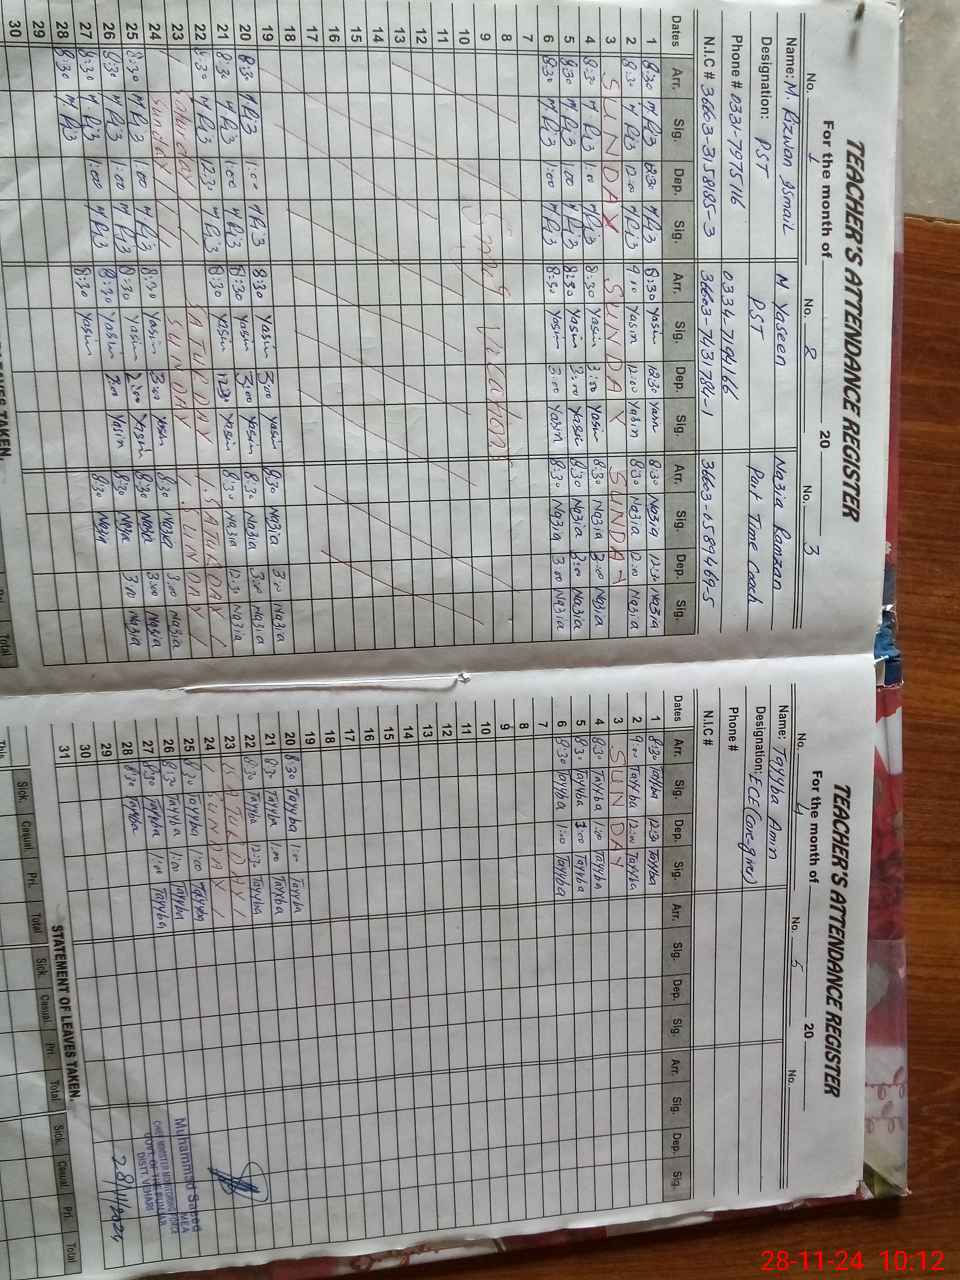 TEACHER'S ATTENDANCE REGISTER
For the month of 20
No. 1 No. 2 No. 3
Name: M. Rizwan Ismail M Yaseen Nazia Ramzan
Designation: PST PST Part Time Coach
Phone # 0331-7975116 0334-7194166
N.I.C # 36603-3158185-3 36603-7431784-1 36603-0589469-5
Dates Arr. Sig. Dep. Sig. Arr. Sig. Dep. Sig. Arr. Sig. Dep. Sig.
1 8:30 12:30 8:30 Yasin 12:30 Yasin 8:30 Nazia 12:30 Nazia
2 8:30 12:00 9:00 Yasin 12:00 Yasin 8:30 Nazia 12:00 Nazia
3 SUNDAY SUNDAY SUNDAY
4 8:30 1:00 8:30 Yasin 3:00 Yasin 8:30 Nazia 3:00 Nazia
5 8:30 1:00 8:30 Yasin 3:00 Yasin 8:30 Nazia 3:00 Nazia
6 8:30 1:00 8:30 Yasin 3:00 Yasin 8:30 Nazia 3:00 Nazia
7
8 Smog Vacation
9
10
11
12
13
14
15
16
17
18
19 8:30 Yasin 3:00 Yasin 8:30 Nazia 3:00 Nazia
20 8:30 1:00 8:30 Yasin 3:00 Yasin 8:30 Nazia 3:00 Nazia
21 8:30 1:00 8:30 Yasin 12:30 Yasin 8:30 Nazia 12:30 Nazia
22 8:30 12:30 SATURDAY SATURDAY
23 Saturday SUNDAY SUNDAY
24 Sunday 8:30 Yasin 3:00 Yasin 8:30 Nazia 3:00 Nazia
25 8:30 1:00 8:30 Yasin 3:00 Yasin 8:30 Nazia 3:00 Nazia
26 8:30 1:00 8:30 Yasin 3:00 Yasin 8:30 Nazia 3:00 Nazia
27 8:30 1:00 8:30 Yasin 8:30 Nazia
28 8:30
29
30
LEAVES TAKEN.
Total
TEACHER'S ATTENDANCE REGISTER
For the month of 20
No. 4 No. 5 No.
Name: Tayyba Amin
Designation: ECE (Care givers)
Phone #
N.I.C #
Dates Arr. Sig. Dep. Sig. Arr. Sig. Dep. Sig. Arr. Sig. Dep. Sig.
1 8:30 Tayyba 12:30 Tayyba
2 9:00 Tayyba 12:00 Tayyba
3 SUNDAY
4 8:30 Tayyba 1:00 Tayyba
5 8:30 Tayyba 1:00 Tayyba
6 8:30 Tayyba 1:00 Tayyba
7
8
9
10
11
12
13
14
15
16
17
18
19
20 8:30 Tayyba 1:00 Tayyba
21 8:30 Tayyba 1:00 Tayyba
22 8:30 Tayyba 12:30 Tayyba
23 SATURDAY
24 SUNDAY
25 8:30 Tayyba 1:00 Tayyba
26 8:30 Tayyba 1:00 Tayyba
27 8:30 Tayyba 1:00 Tayyba
28 8:30 Tayyba
29
30
31
Muhammad Saeed
MEA
CHIEF MINISTER MONITORING FORCE
GOVT. OF THE PUNJAB
DISTT. VEHARI
28/11/2024
STATEMENT OF LEAVES TAKEN.
Sick. Casual. Pri. Total Sick. Casual. Pri. Total Sick. Casual. Pri. Total
This
28-11-24 10:12